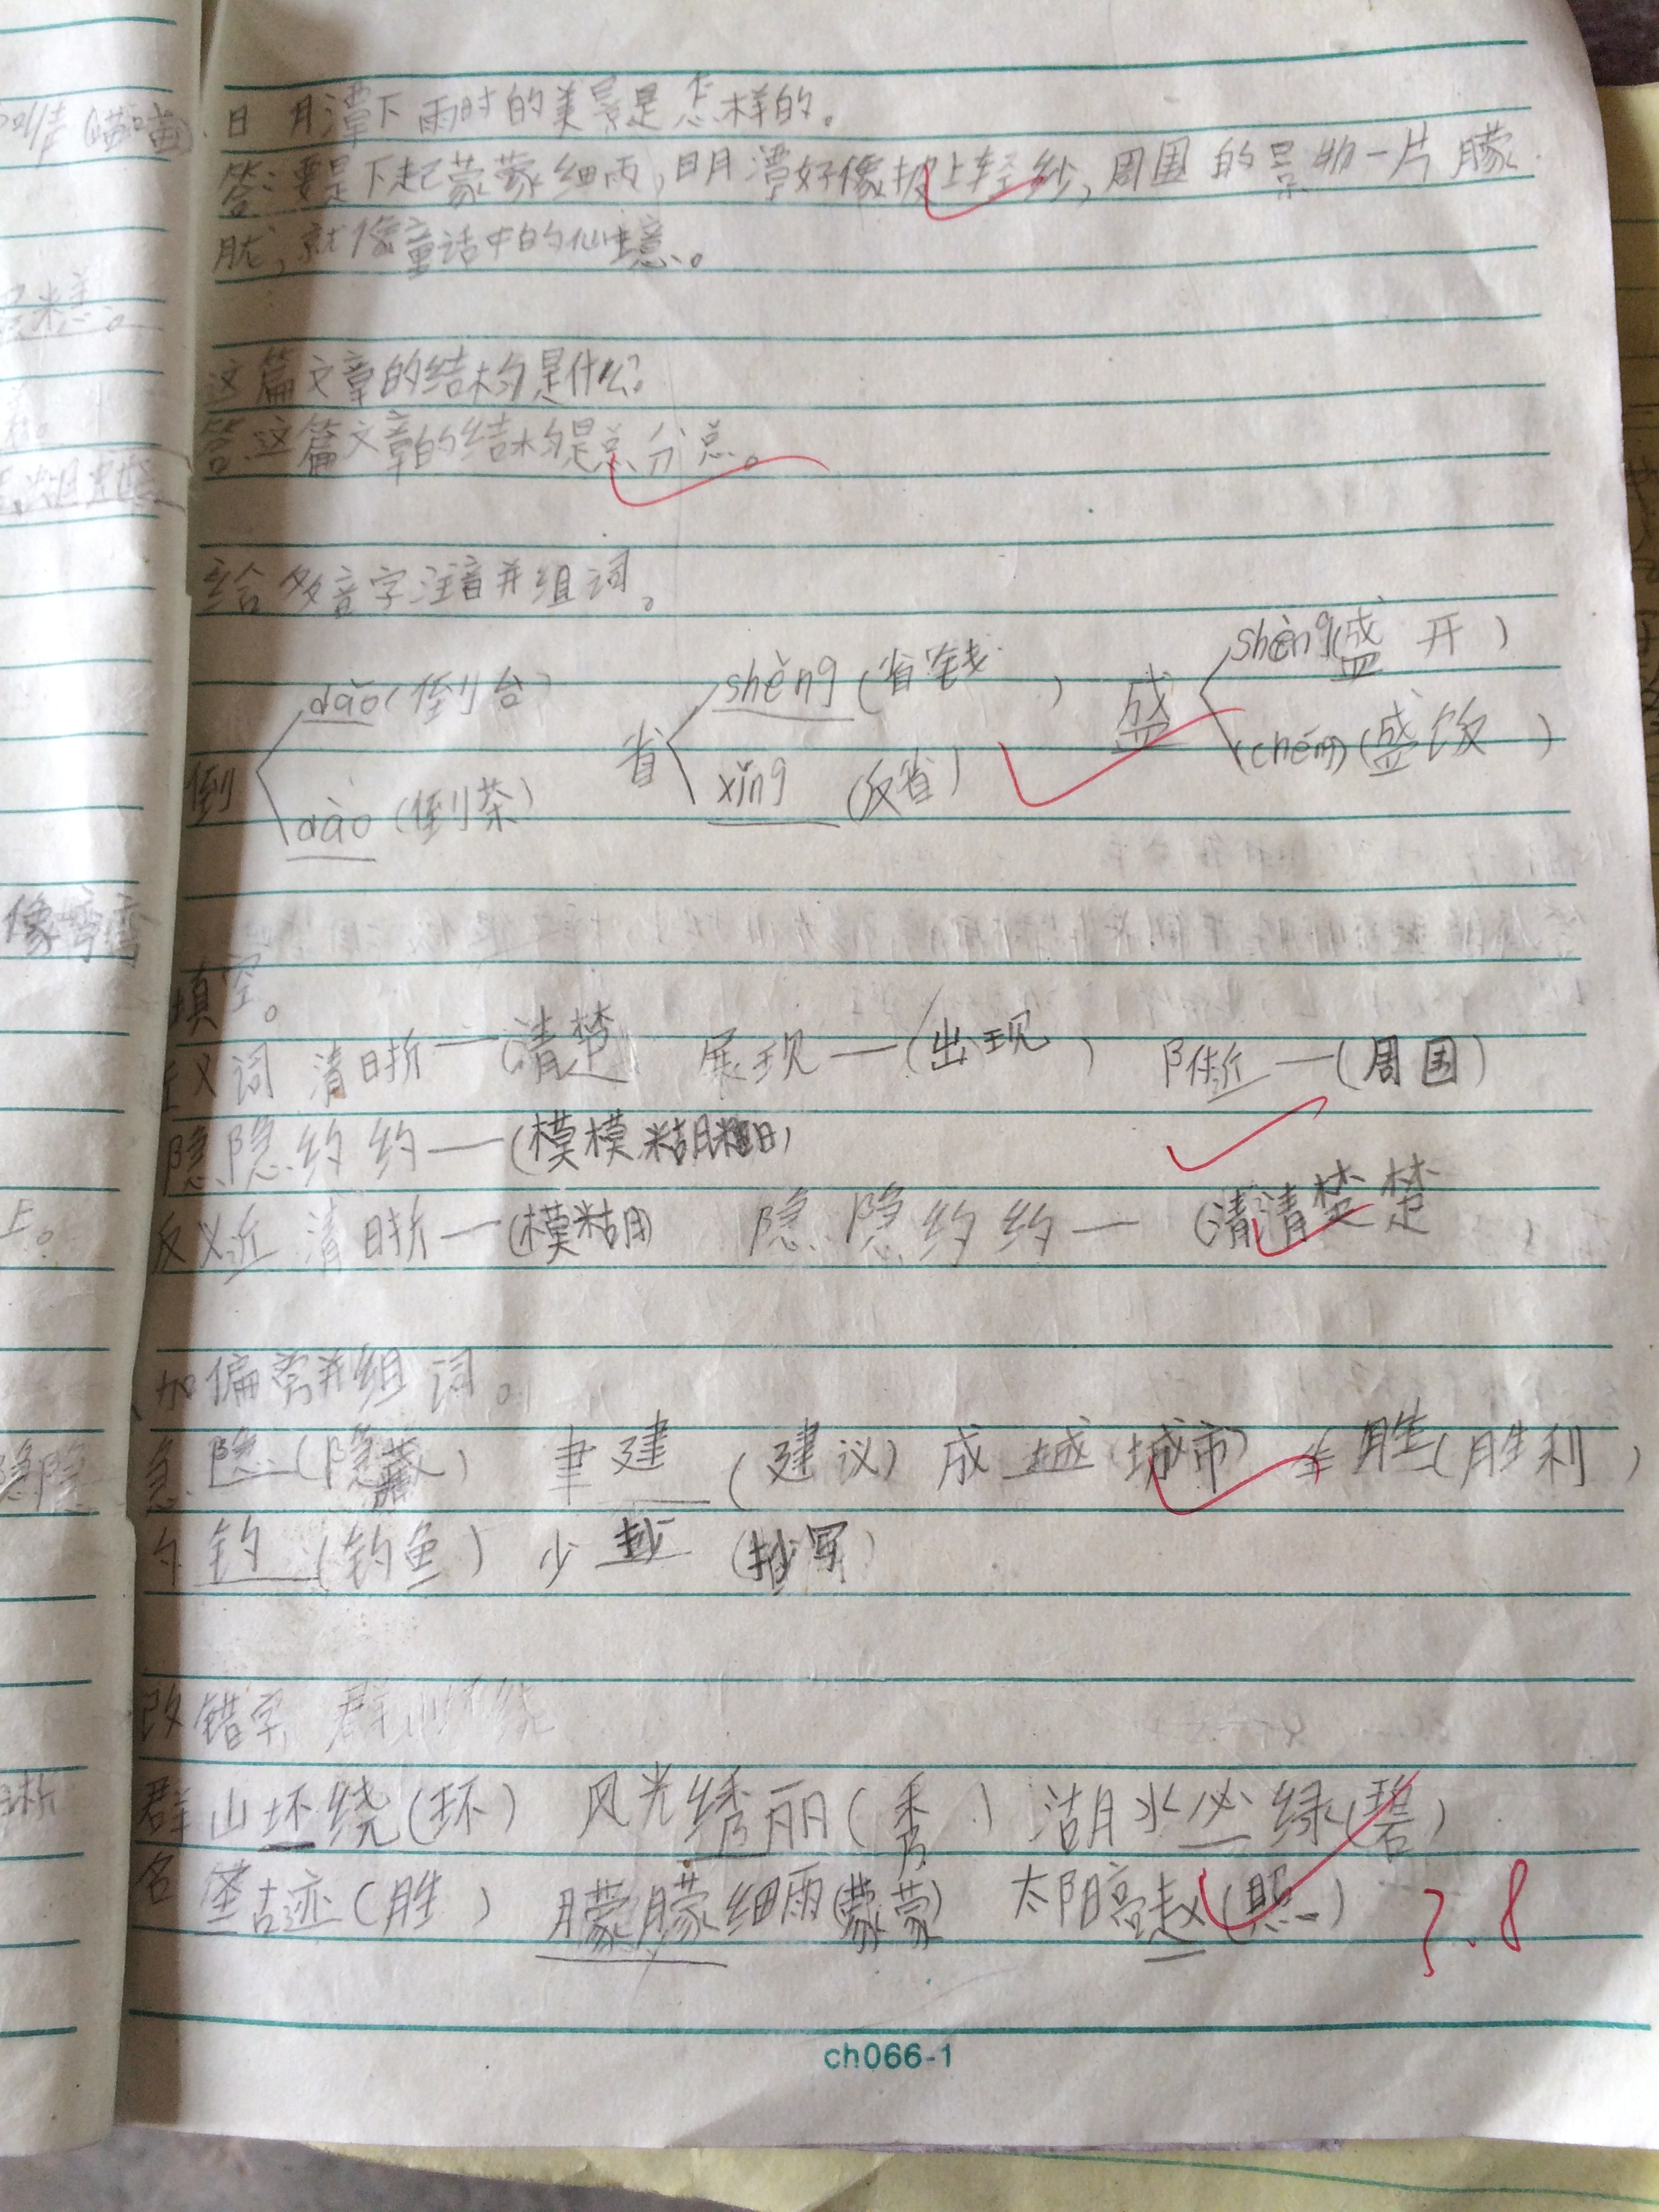 日月潭下雨时的美景是怎样的。
答:要是下起蒙蒙细雨,日月潭好像披上轻纱,周围的景物一片朦
胧,就像童话中的仙境。
这篇文章的结构是什么?
答:这篇文章的结构是总分总。
给多音字注音并组词。
倒 dǎo(倒台) 省 shěng(省钱) 盛 shèng(盛开)
dào(倒茶) xǐng(反省) (chéng)(盛饭)
填空。
近义词 清晰—(清楚) 展现—(出现) 附近—(周围)
隐隐约约—(模模糊糊)
反义近 清晰—(模糊) 隐隐约约—(清清楚楚
加偏旁并组词。
急 隐(隐藏) 聿 建(建议) 成 城(城市) 生 胜(胜利)
勺 钓(钓鱼) 少 抄(抄写)
改错字 群山环绕
群山坏绕(环) 风光绣丽(秀) 湖水必绿(碧)
名圣古迹(胜) 朦朦细雨(蒙蒙) 太阳高赵(照)
7.8
ch066-1
像弯弯
隐隐